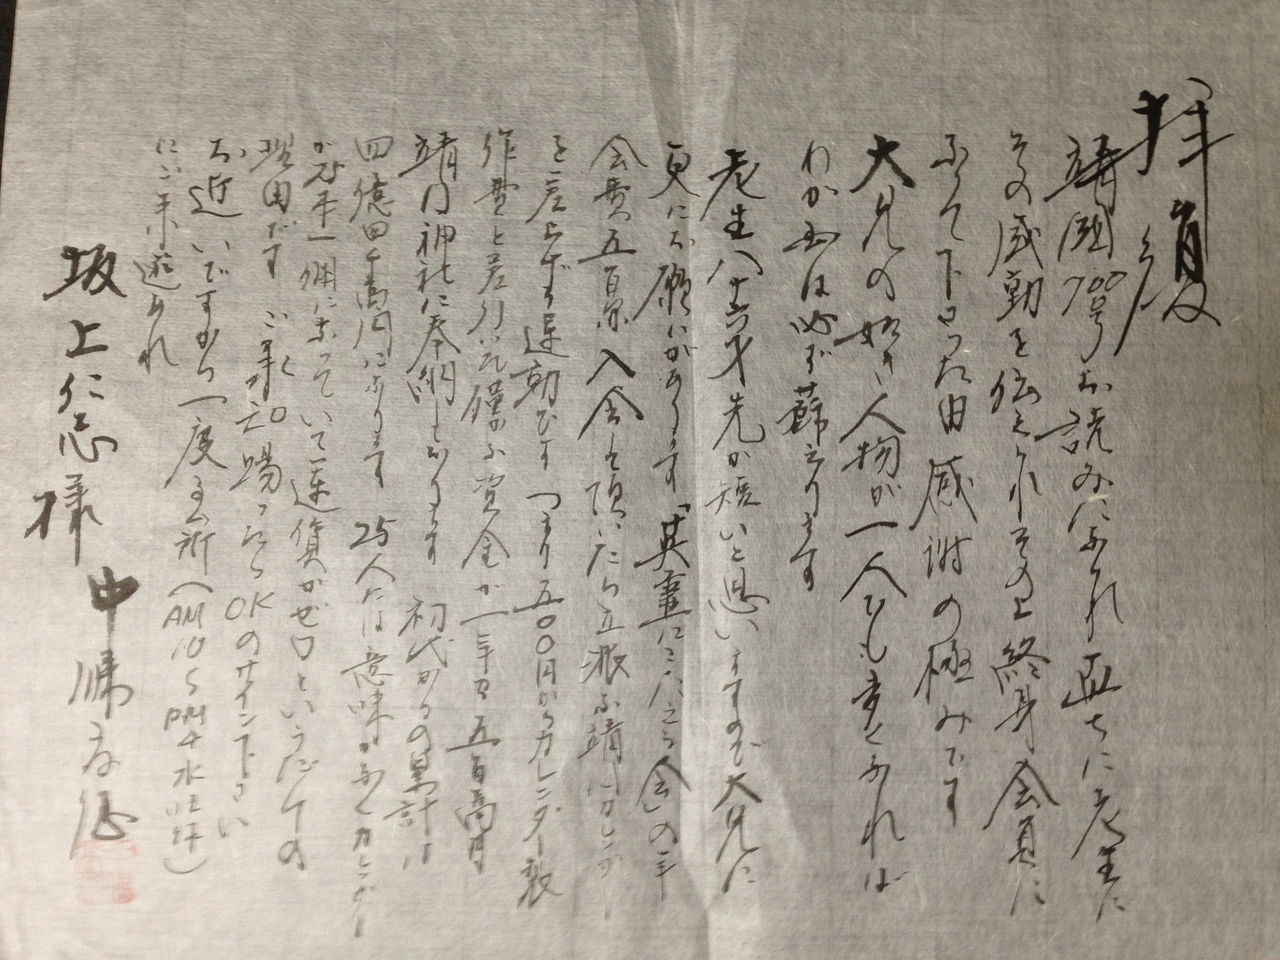 拝復
靖國700号お読みになれ直ちに老生に
その感動を伝えられその上終身会員に
なって下さった由 感謝の極みです
大兄の如き人物が一人でも多くなれば
わが国は必ず蘇えります
老生八十六才先が短いと思いますので大兄に
更にお願いがあります「英霊にこたえる会」の年
会費五百円 入会して頂いたら立派な靖国カレンダー
を差上げる運動です つまり五〇〇円からカレンダー製
作費と差引いた僅かな資金が一年で五百萬円
靖国神社に奉納しております 初代からの累計は
四億四千萬円になります 25人には意味がなくカレンダー
が一梱になっていて運賃がゼロというだけの
理由です ご承引賜ったらOKのサイン下さい
お近いですから一度主所(AM10〜PM4水曜休)
にご来遊あれ
坂上仁志様
中條高德